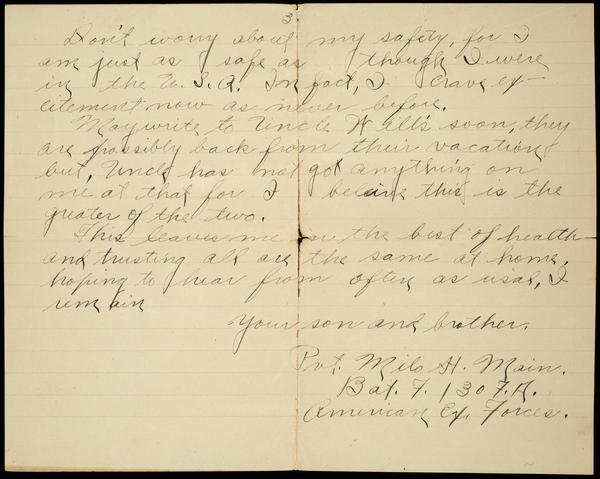 3.
Don't worry about my safety, for I
am just as safe as though I were
in the U.S.A. In fact, I crave ex-
citement now as never before.
May write to Uncle Will's soon, they
are possibly back from their vacation
but, Uncle has not got anything on
me at that for I believe this is the
greater of the two.
This leaves me in the best of health
and trusting all are the same at home,
hoping to hear from often as usal, I
remain
Your son and brother.
Pvt. Milo H. Main.
Bat. F. 130 F.A.
American Ex. Forces.